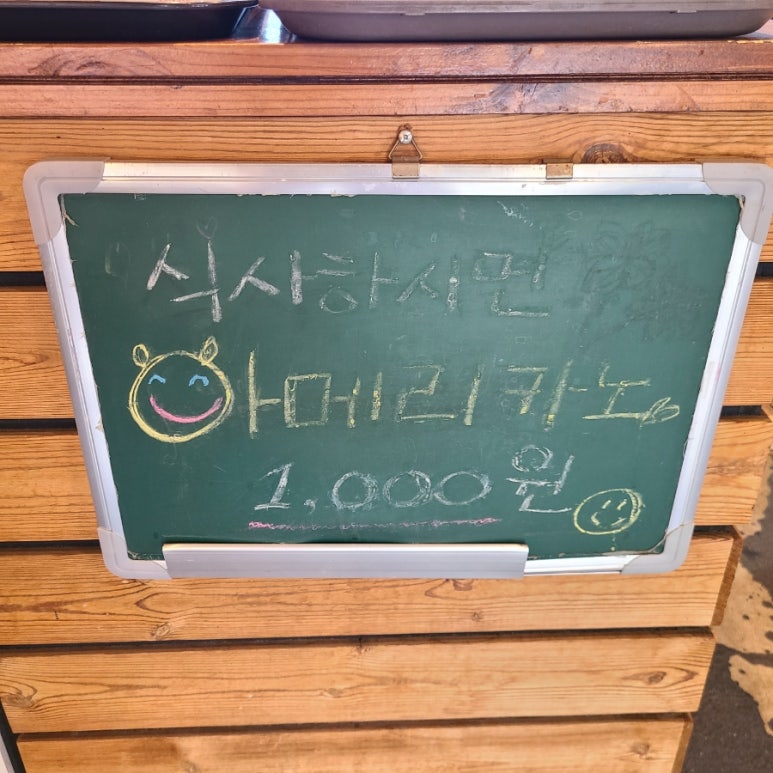 식사하시면
아메리카노
1,000원